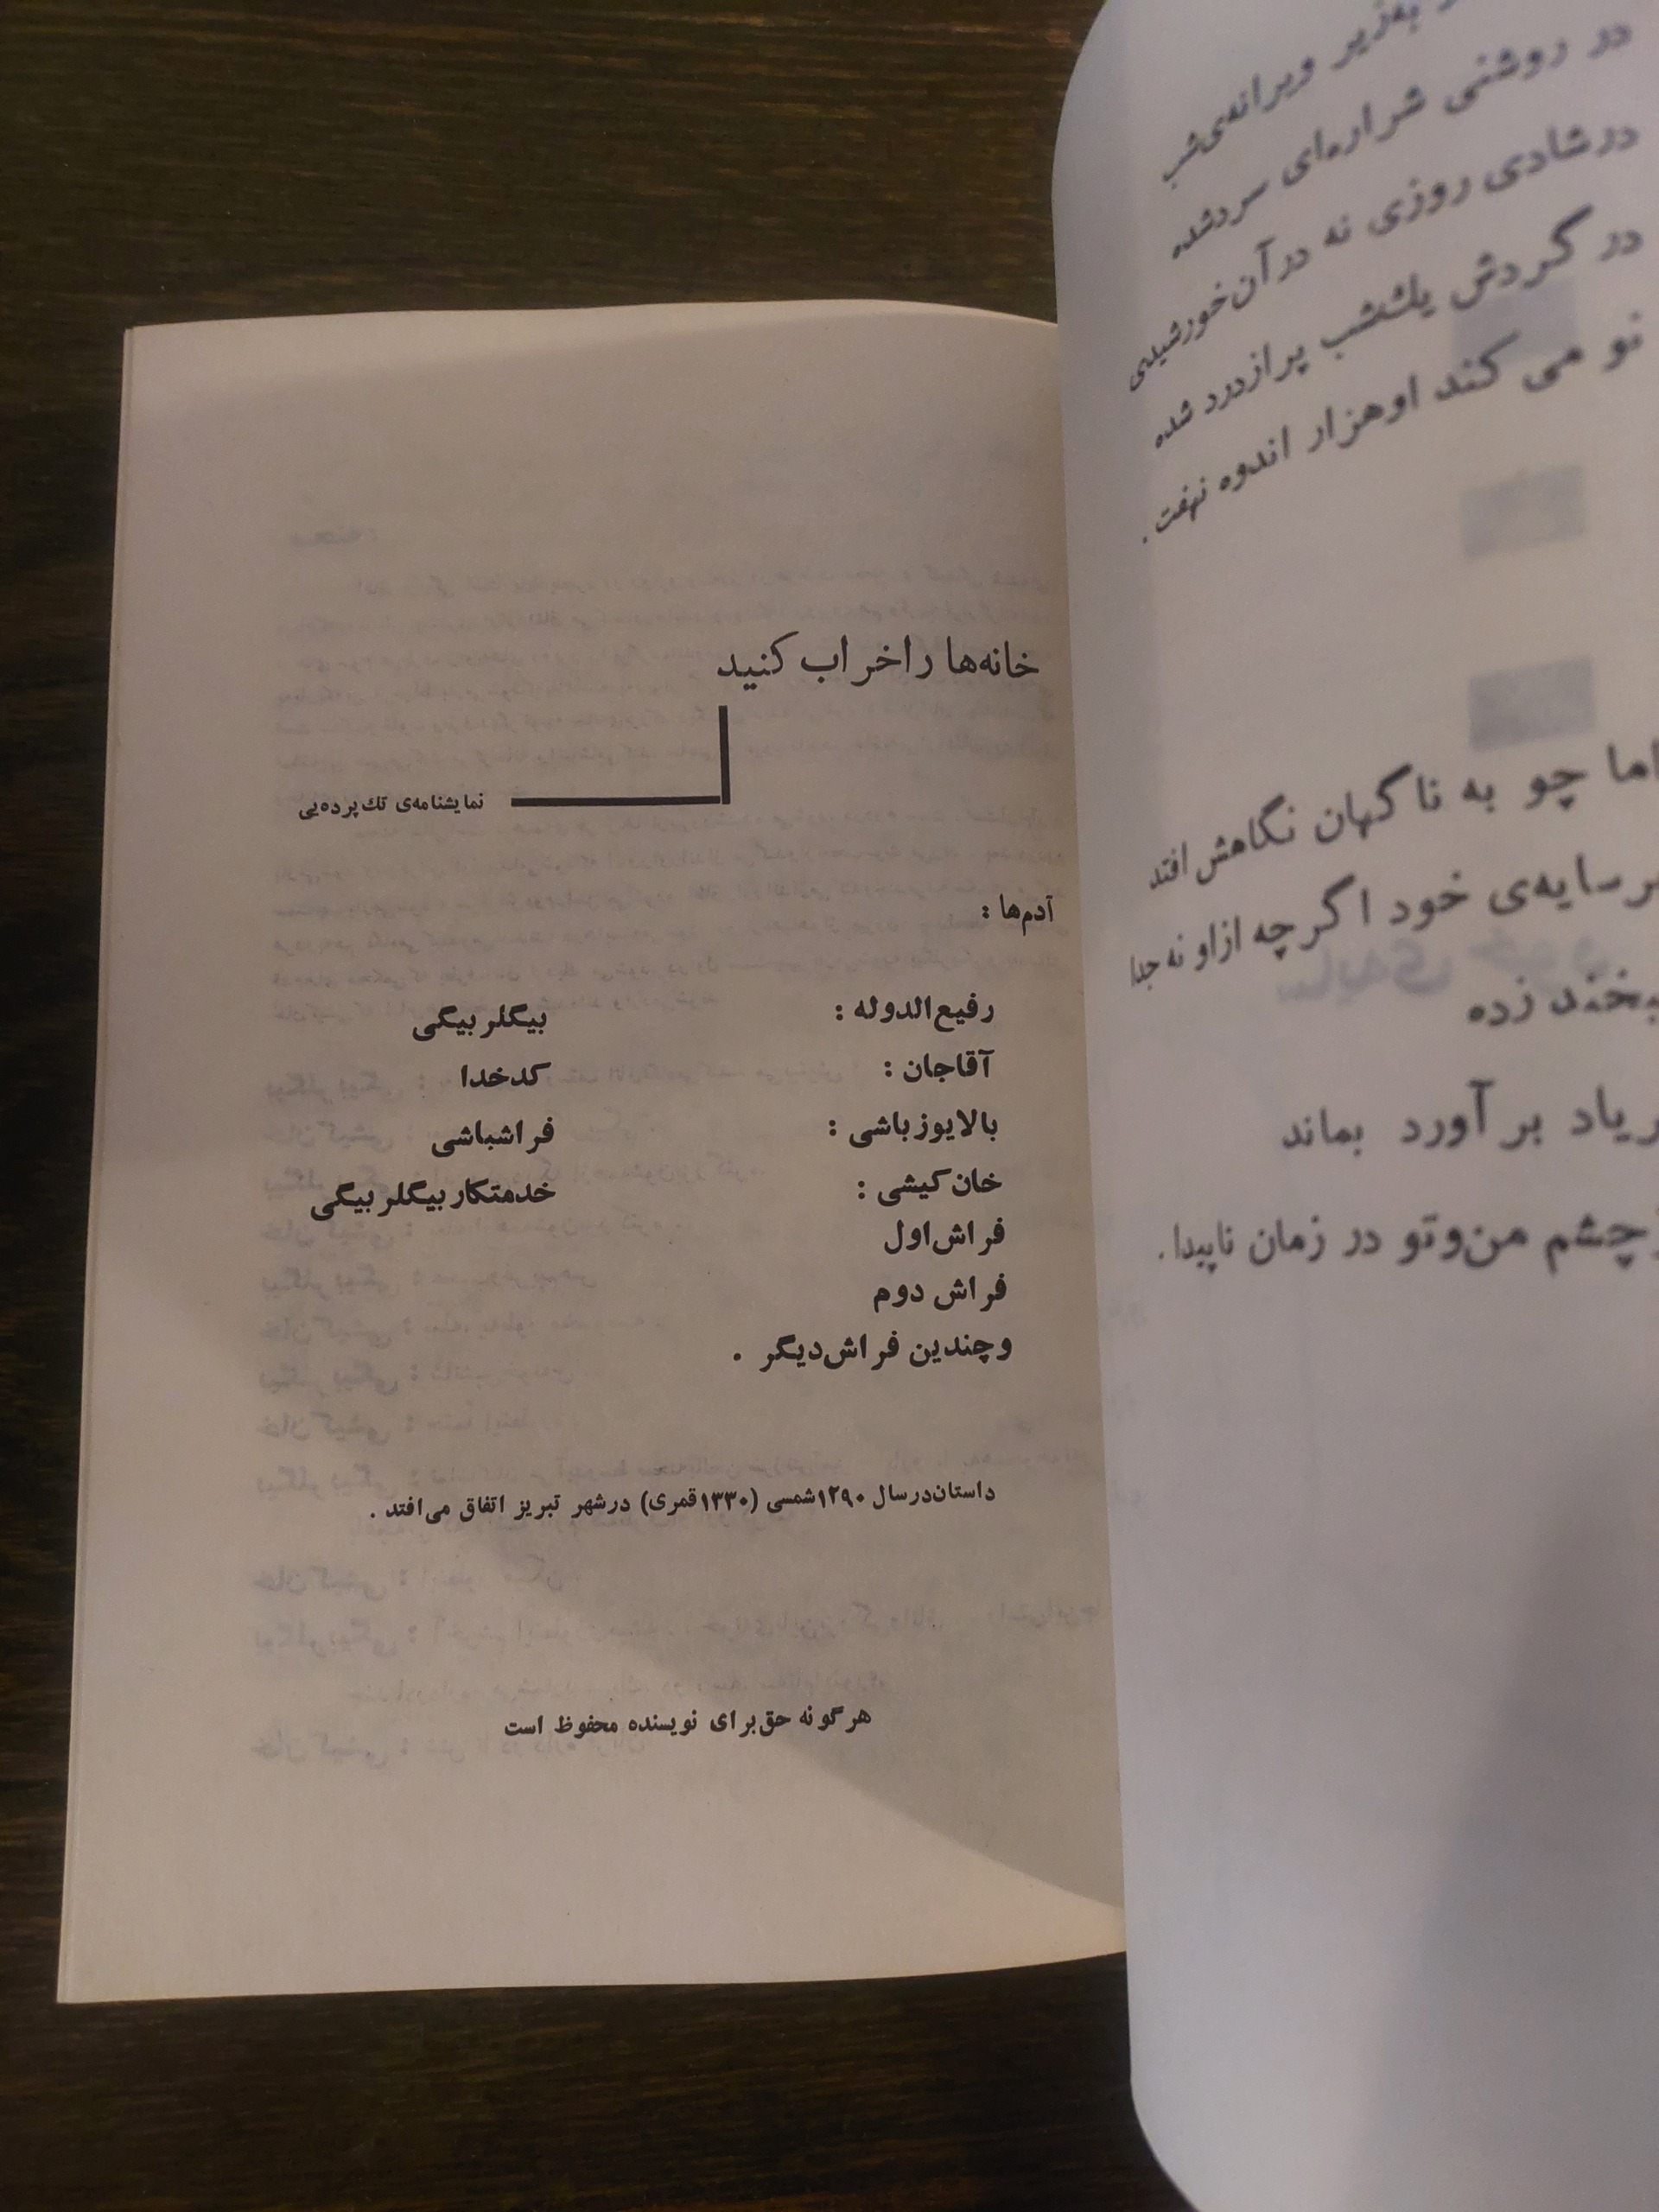 به‌زیر ویرانه‌ی‌شب
در روشنی شراره‌ای سردشده
درشادی روزی نه درآن‌خورشیدی
در گردش یك‌شب پرازدرد شده
نو می کند اوهزار اندوه نهفت .
اما چو به ناگهان نگاهش افتد
سایه‌ی خود اگرچه ازاو نه‌جدا
زده
بر آورد بماند
چشم من‌وتو در زمان ناپیدا .
خانه‌ها راخراب کنید
نمایشنامه‌ی تك‌پرده‌یی
آدم‌ها :
رفیع‌الدوله : بیگلربیگی
آقاجان : کدخدا
بالایوزباشی : فراشباشی
خان‌کیشی : خدمتکاربیگلربیگی
فراش‌اول
فراش دوم
وچندین فراش‌دیگر .
داستان‌درسال ۱۲۹۰شمسی (۱۳۳۰قمری) درشهر تبریز اتفاق می‌افتد .
هرگونه حق‌برای نویسنده محفوظ است